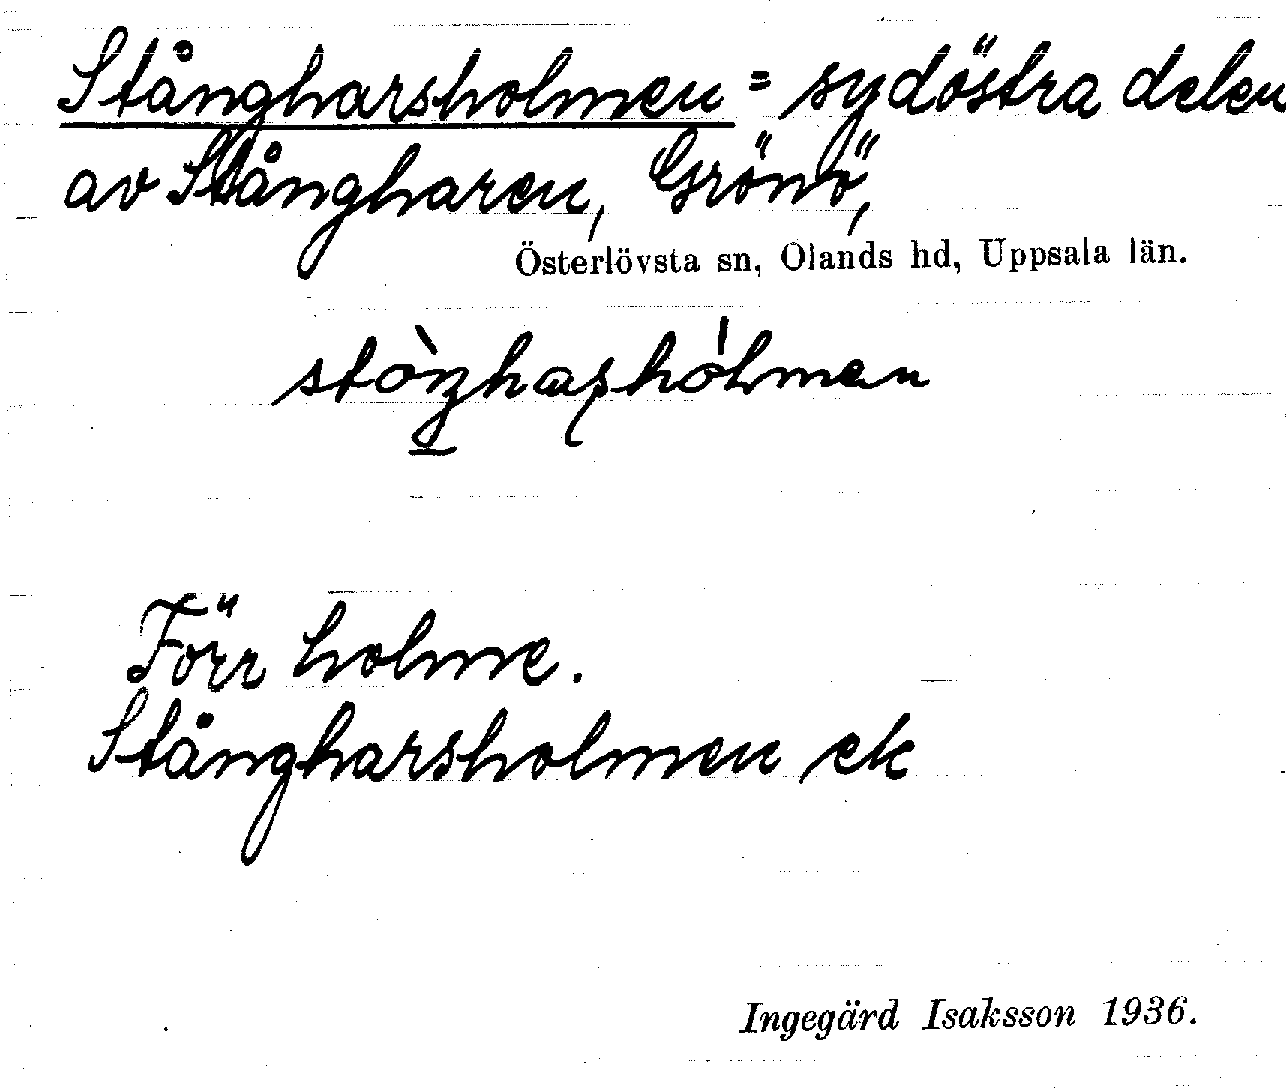 Stångharsholmen = sydöstra delen
av Stångharen, Grönö,
Österlövsta sn, Olands hd, Uppsala län.
Förr holme.
Stångharsholmen ek
Ingegärd Isaksson 1936.